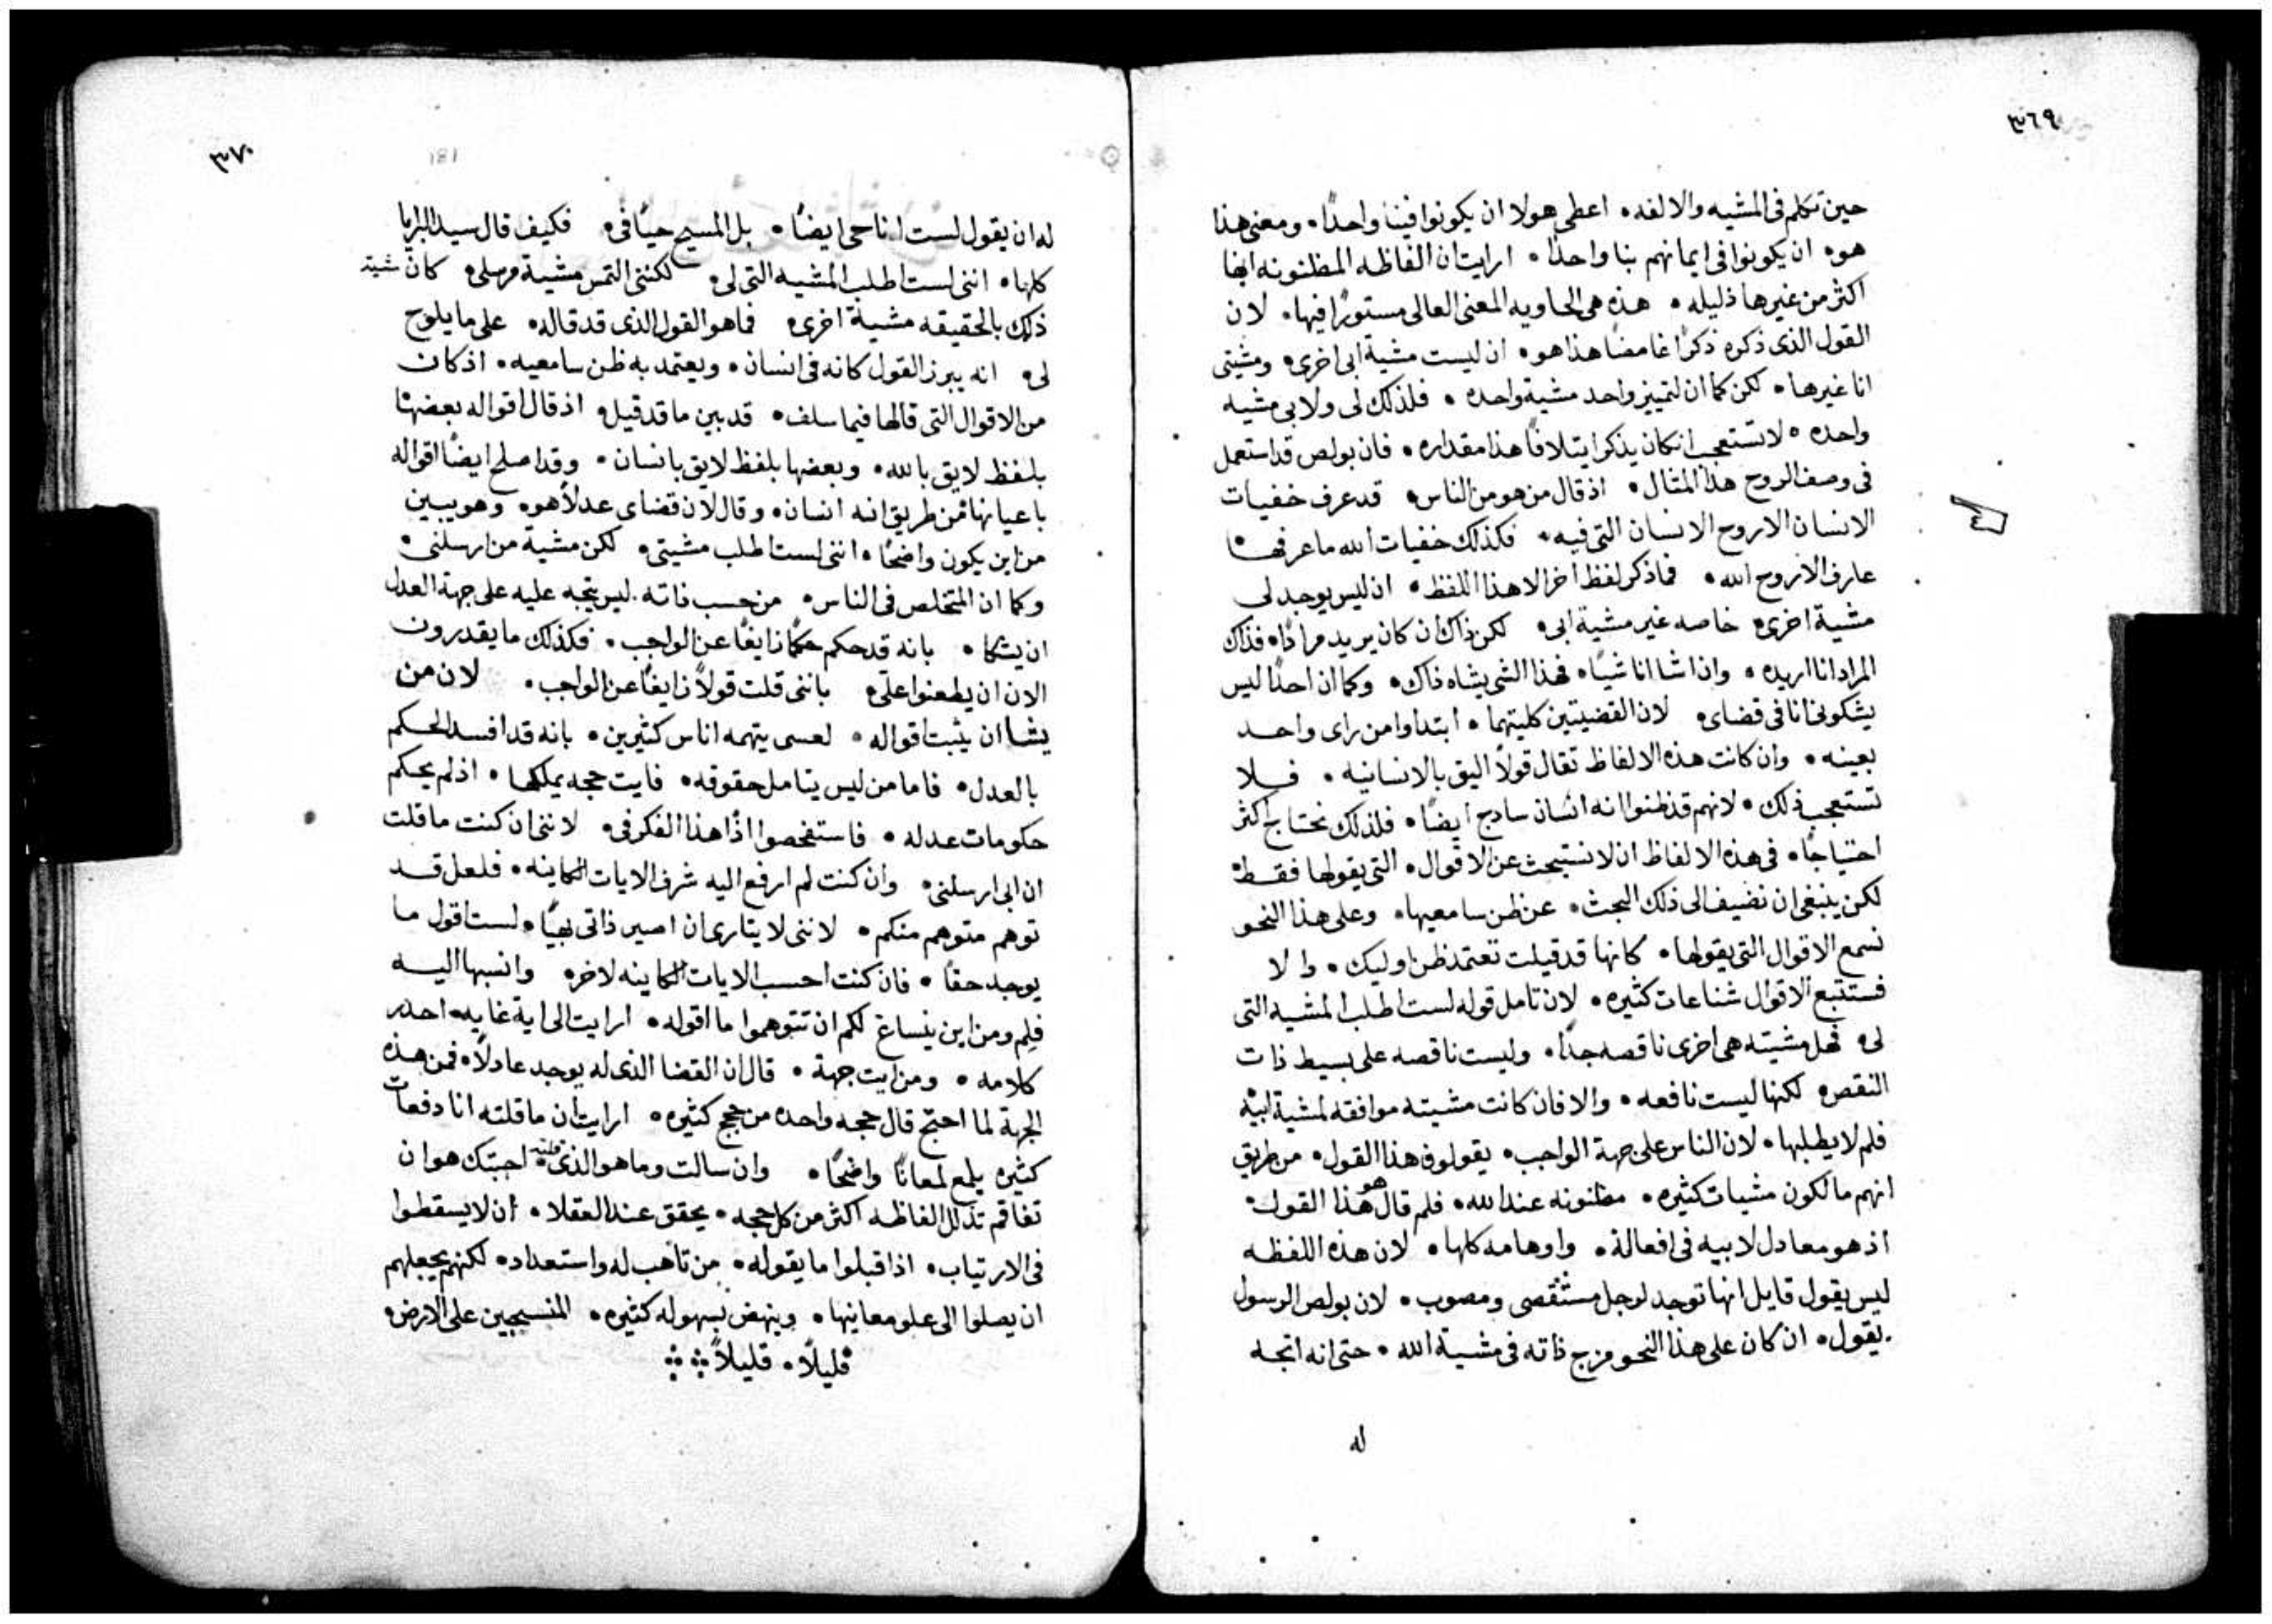 ٣٦٩
حين تكلم فى المشيه والالفه • اعطى هولا ان يكونوا فينا واحداً • ومعنى هذا
هو • ان يكونوا فى ايمانهم بنا واحداً • ارايت ان الفاظه المظنونه انها
اكثر من غيرها ذليله • هذه هى الحاويه المعنى العالى مستوراً فيها • لان
القول الذى ذكره ذكراً غامضاً هذا هو • ان ليست مشية ابى اخرى • ومشيتى
انا غيرها • لكن كما ان لتمييز واحد مشية واحده • فلذلك لى ولابى مشيه
واحده • لا تستعجب ان كان يذكر ايتلافاً هذا مقداره • فان بولص قد استعمل
فى وصف الروح هذا المثال • اذ قال من هو من الناس • قد عرف خفيات
الانسان الا روح الانسان التى فيه • فكذلك خفيات الله ما عرفها •
عارف الا روح الله • فما ذكر لفظ اخر الا هذا اللفظ • ان ليس يوجد لى
مشية اخرى • خاصه غير مشية ابى • لكن ذاك ان كان يريد مراداً • فذاك
المراد انا اريده • واذا شا انا شياً • فهذا الشى يشاه ذاك • وكما ان احداً ليس
يشكونى انا فى قضاى • لان القضيتين كليتهما • ابتداوا من راى واحد
بعينه • وان كانت هذه الالفاظ تقال قولاً اليق بالانسانيه • فلا
تستعجب ذلك • لانهم قد ظنوا انه انسان سادج ايضاً • فلذلك نحتاج اكثر
احتياجاً • فى هذه الالفاظ ان لا نستبحث عن الاقوال • التى يقولها فقط •
لكن ينبغى ان نضيف الى ذلك البحث • عن ظن سامعيها • وعلى هذا النحو
نسمع الاقوال التى يقولها • كانها قد قيلت تعتمد ظن اوليك • والا
فستتبع الاقوال شناعات كثيره • لان تامل قوله لست اطلب المشيه التى
لى • فهل مشيته هى اخرى ناقصه جداً • وليست ناقصه على بسيط ذات
النقص • لكنها ليست نافعه • والا فان كانت مشيته موافقه لمشية ابيه •
فلم لا يطلبها • لان الناس على جهة الواجب • يقولون هذا القول • من طريق
انهم مالكون مشيات كثيره • مظنونه عند الله • فلم قال هو هذا القول •
اذ هو معادل لابيه فى افعاله • واوهامه كلها • لان هذه اللفظه
ليس يقول قايل انها توجد لرجل مستقصى ومصوب • لان بولص الرسول
يقول • ان كان على هذا النحو مزج ذاته فى مشية الله • حتى انه اتجه
له
٣٧٠
له ان يقول لست انا حى ايضاً • بل المسيح حياً فى • فكيف قال سيد البرايا
كلها • اننى لست اطلب المشيه التى لى • لكننى التمس مشية مرسلى • كان مشيته
ذلك بالحقيقه مشية اخرى • فما هو القول الذى قد قاله • على ما يلوح
لى • انه يبرز القول كانه فى انسان • ويعتمد به ظن سامعيه • اذ كان
من الاقوال التى قالها فيما سلف • قد بين ما قد قيل • اذ قال اقواله بعضها
بلفظ لايق بالله • وبعضها بلفظ لايق بانسان • وقد اصلح ايضاً اقواله
باعيانها من طريق انه انسان • وقال لان قضاى عدلاً هو • وهو يبين
من اين يكون واضحاً • اننى لست اطلب مشيتى • لكن مشية من ارسلنى •
وكما ان المتخلص فى الناس • من حسب ذاته • ليس يتجه عليه على جهة العدل
ان يشكا • بانه قد حكم حكماً زايغاً عن الواجب • فكذلك ما يقدرون
الان ان يطعنوا على • باننى قلت قولاً زايغاً عن الواجب • لان من
يشا ان يثبت اقواله • لعسى يتهمه اناس كثيرين • بانه قد افسد الحكم
بالعدل • فاما من ليس يتامل حقوقه • فايت حجه يملكها • اذ لم يحكم
حكومات عدله • فاستفحصوا اذاً هذا الفكر فى • لاننى ان كنت ما قلت
ان ابى ارسلنى • وان كنت لم ارفع اليه شرف الايات الكاينه • فلعل قد
توهم متوهم منكم • لاننى لا يتارى ان اصير ذاتى بهياً • لست اقول ما
يوجد حقاً • فان كنت احسب الايات الكاينه لاخر • وانسبها اليه
فلم ومن اين ينساغ لكم ان تتوهموا ما اقوله • ارايت الى اية غايه احدر
كلامه • ومن ايت جهة • قال ان القضا الذى له يوجد عادلاً • فمن هذه
الجهة لما احتج قال حجه واحده من حجج كثيره • ارايت ان ما قلته انا دفعات
كثيره يلمع لمعاناً واضحاً • وان سالت وما هو الذى قلته • اجبتك هو ان
تفاقم تذلل الفاظه اكثر من كل حجه • يحقق عند العقلا • ان لا يسقطوا
فى الارتياب • اذا قبلوا ما يقوله • من تاهب له واستعداد • لكنهم يجعلهم
ان يصلوا الى علو معانيها • وينهض بسهوله كثيره • المنسحبين على الارض •
قليلاً • قليلاً